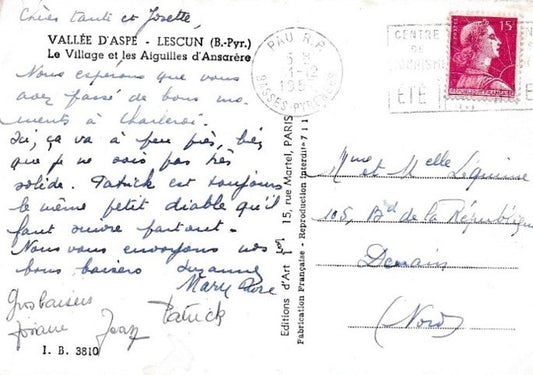 Chères tante et Josette,
VALLÉE D'ASPE - LESCUN (B.-Pyr.)
Le Village et les Aiguilles d'Ansarère
Nous espérons que vous
avez passé de bons mo-
ments à Charleroi.
Ici, ça va à peu près, bien
que je ne sois pas très
solide. Patrick est toujours
le même petit diable qu'il
faut suivre partout.
Nous vous envoyons nos
bons baisers Suzanne
Mary Rose
Gros baisers
Josiane Jean Patrick
I. B. 3810
Editions d'Art 15, rue Martel, PARIS
Fabrication Française - Reproduction Interdite 711
PAU R.P.
BASSES-PYRENEES
CENTRE
DE
TOURISME
ÉTÉ
15F
REPUBLIQUE FRANÇAISE
Mme et Melle Léquime
105, Bd de la République
Denain
(Nord)